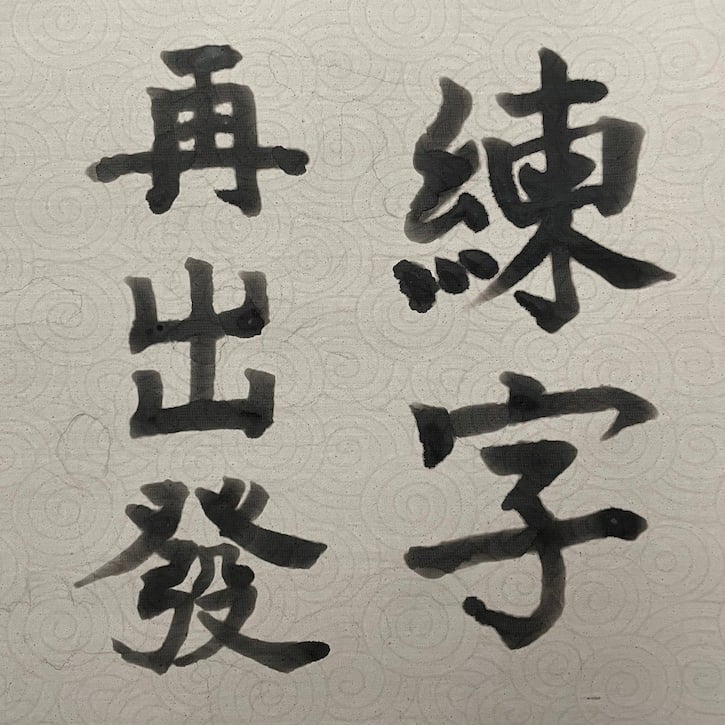 練字
再出發